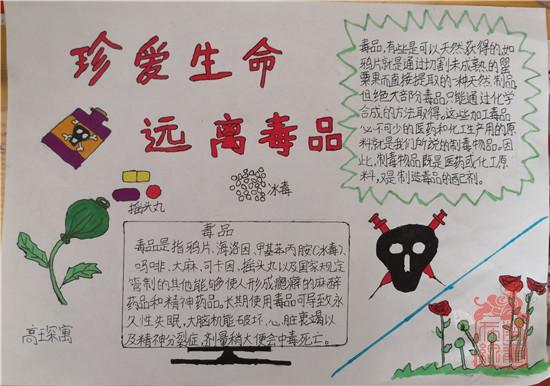 珍爱生命
远离毒品
毒品,有些是可以天然获得的,如
鸦片就是通过切割未成熟的罂
粟果而直接提取的一种天然制品,
但绝大部份毒品只能通过化学
合成的方法取得。这些加工毒品
必不可少的医药和化工生产用的原
料就是我们所说的制毒物品。因
此,制毒物品既是医药或化工原
料,又是制造毒品的配剂。
摇头丸
冰毒
毒品
毒品是指鸦片、海洛因、甲基苯丙胺(冰毒)、
吗啡、大麻、可卡因、摇头丸以及国家规定
管制的其他能够使人形成瘾癖的麻醉
药品和精神药品。长期使用毒品可导致永
久性失眠,大脑机能破坏、心脏衰竭以
及精神分裂症,剂量稍大便会中毒死亡。